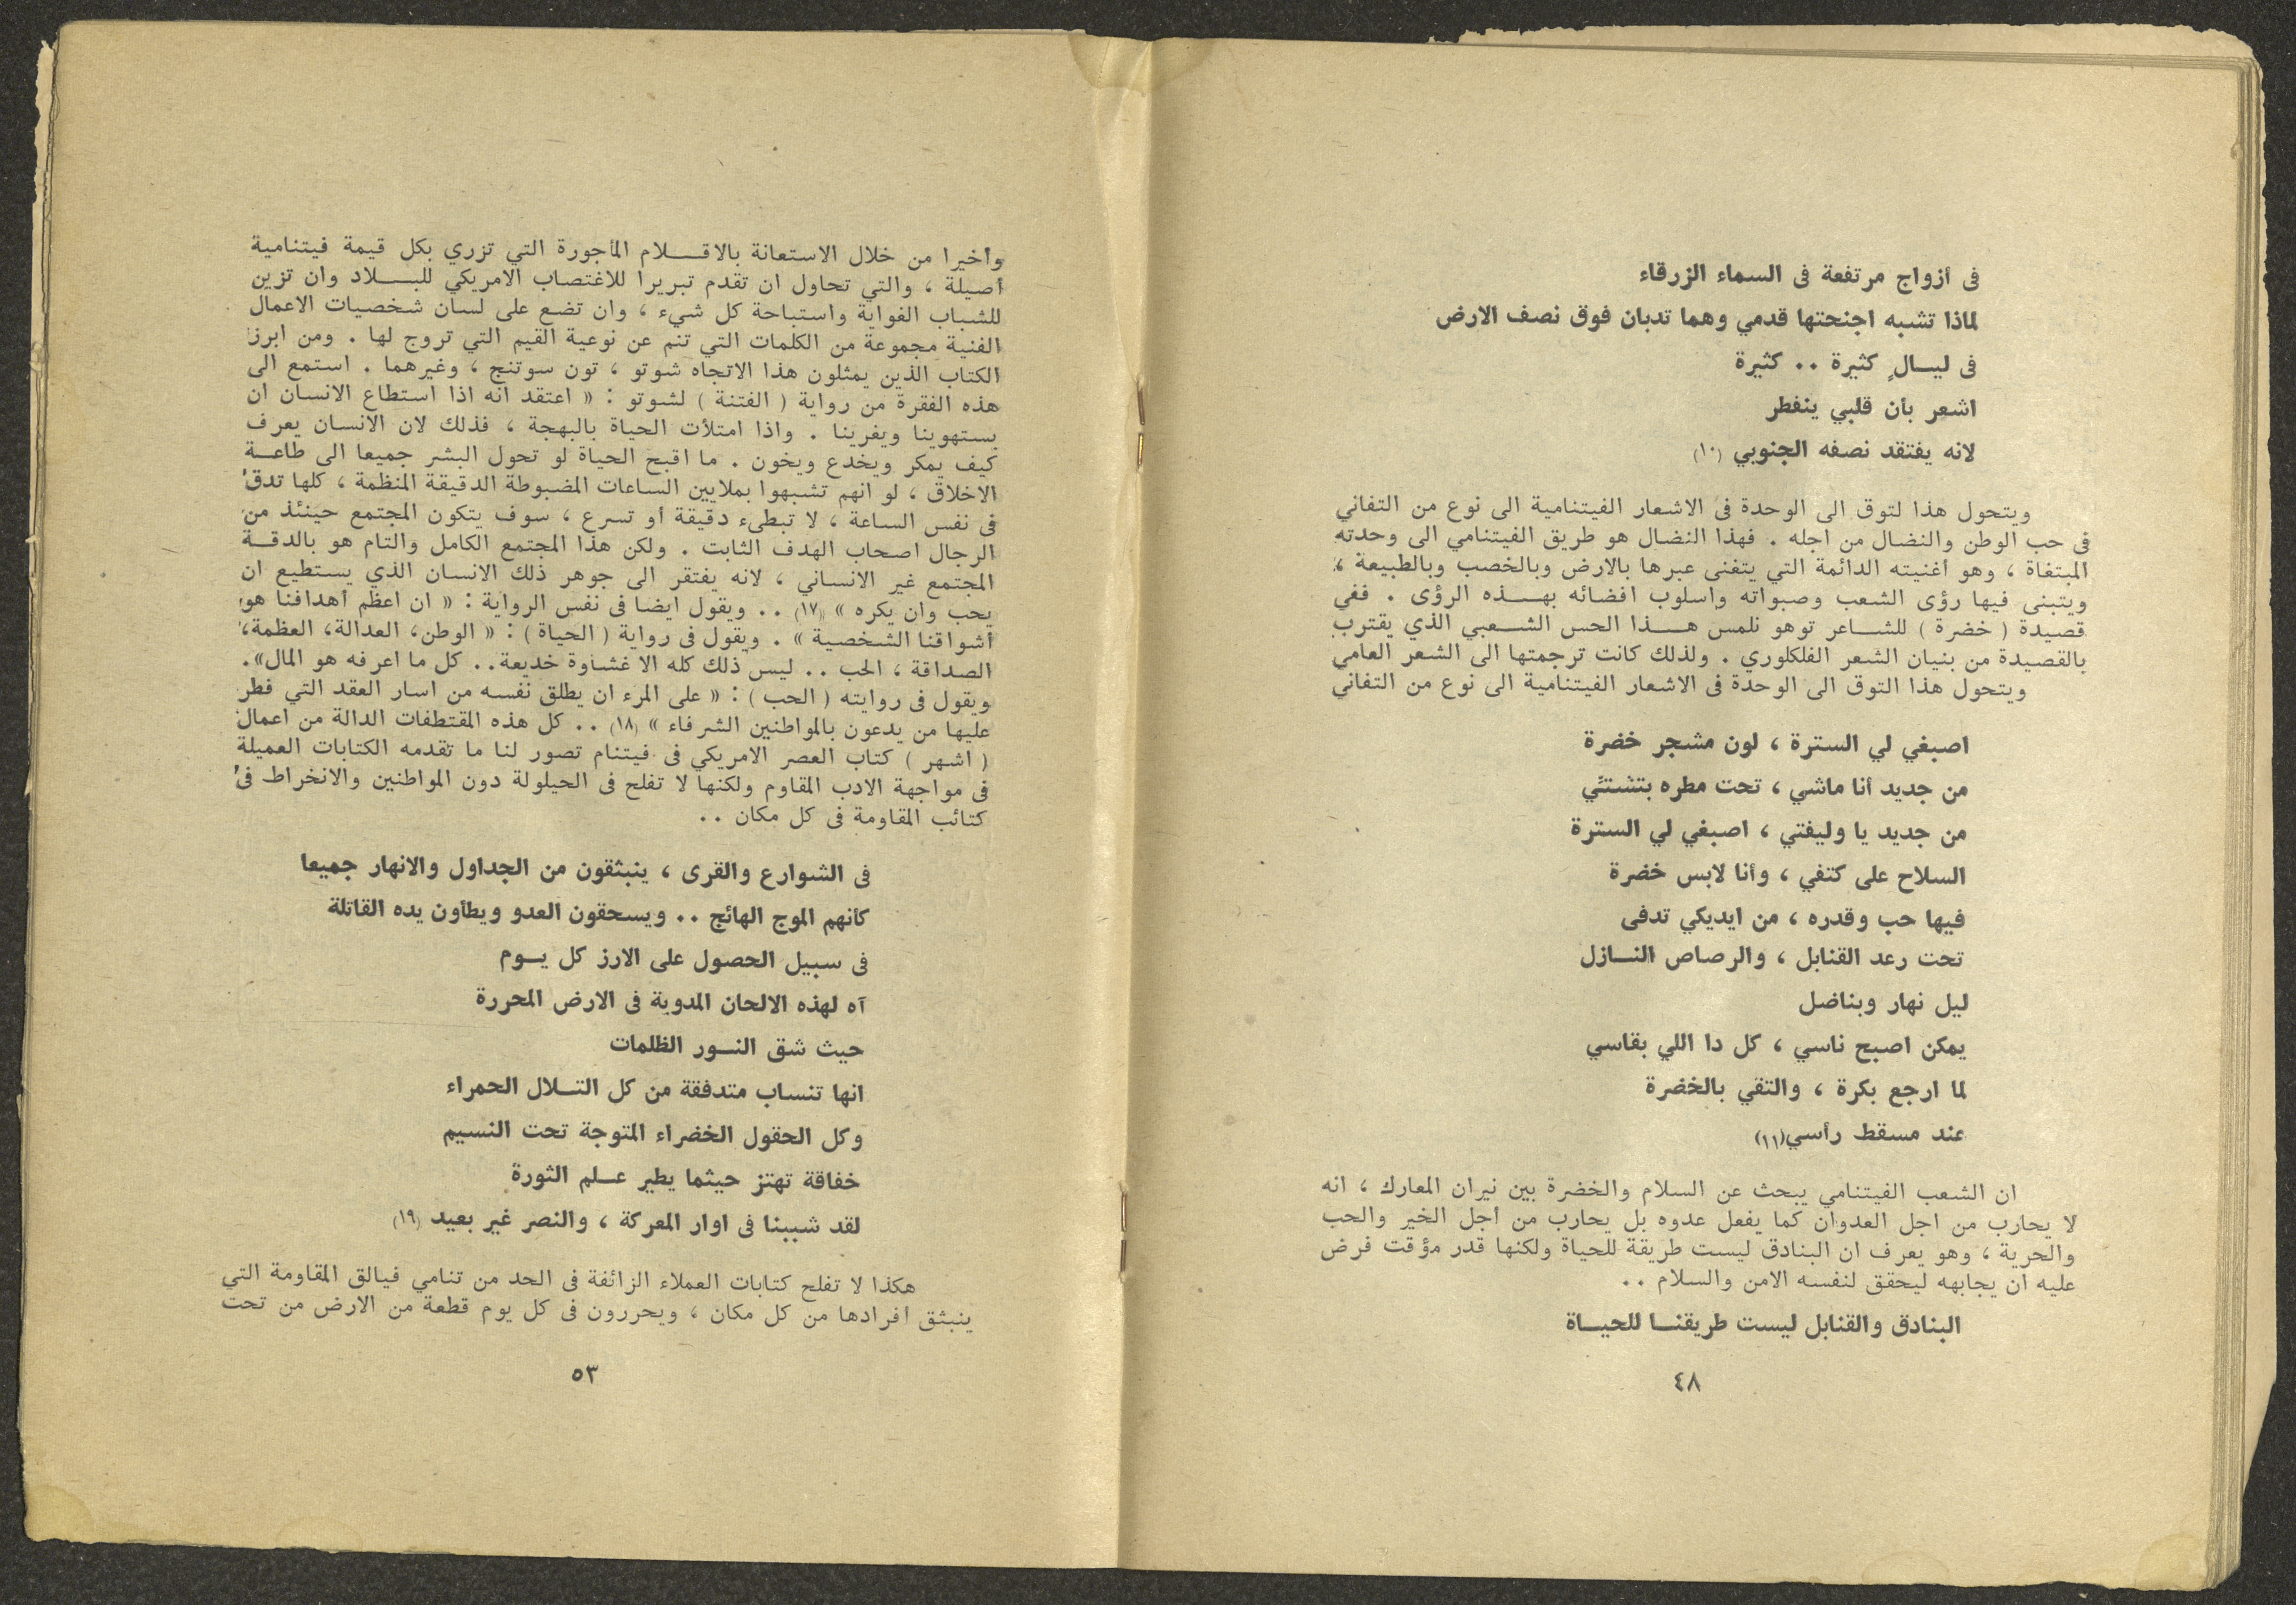 فى أزواج مرتفعة فى السماء الزرقاء
لماذا تشبه اجنحتها قدمي وهما تدبان فوق نصف الارض
فى ليـــالٍ كثيرة .. كثيرة
اشعر بأن قلبي ينفطر
لانه يفتقد نصفه الجنوبي (١٠)
ويتحول هذا لتوق الى الوحدة فى الاشعار الفيتنامية الى نوع من التفاني
فى حب الوطن والنضال من اجله . فهذا النضال هو طريق الفيتنامي الى وحدته
المبتغاة ، وهو أغنيته الدائمة التي يتغنى عبرها بالارض وبالخصب وبالطبيعة ،
ويتبنى فيها رؤى الشعب وصبواته واسلوب افضائه بهـــذه الرؤى . ففي
قصيدة ( خضرة ) للشـــاعر توهو نلمس هـــذا الحس الشـــعبي الذي يقترب
بالقصيدة من بنيان الشعر الفلكلوري . ولذلك كانت ترجمتها الى الشعر العامي
ويتحول هذا التوق الى الوحدة فى الاشعار الفيتنامية الى نوع من التفاني
اصبغي لي السترة ، لون مشجر خضرة
من جديد أنا ماشي ، تحت مطره بتشتّي
من جديد يا وليفتي ، اصبغي لي السترة
السلاح على كتفي ، وأنا لابس خضرة
فيها حب وقدره ، من ايديكي تدفى
تحت رعد القنابل ، والرصاص النـــازل
ليل نهار وبناضل
يمكن اصبح ناسي ، كل دا اللي بقاسي
لما ارجع بكرة ، والتقي بالخضرة
عند مسقط رأسي(١١)
ان الشعب الفيتنامي يبحث عن السلام والخضرة بين نيران المعارك ، انه
لا يحارب من اجل العدوان كما يفعل عدوه بل يحارب من أجل الخير والحب
والحرية ، وهو يعرف ان البنادق ليست طريقة للحياة ولكنها قدر مؤقت فرض
عليه ان يجابهه ليحقق لنفسه الامن والسلام ..
البنادق والقنابل ليست طريقنـــا للحيـــاة
٤٨
وأخيرا من خلال الاستعانة بالاقـــلام المأجورة التي تزري بكل قيمة فيتنامية
أصيلة ، والتي تحاول ان تقدم تبريرا للاغتصاب الامريكي للبـــلاد وان تزين
للشباب الغواية واستباحة كل شيء ، وان تضع على لسان شخصيات الاعمال
الفنية مجموعة من الكلمات التي تنم عن نوعية القيم التي تروج لها . ومن ابرز
الكتاب الذين يمثلون هذا الاتجاه شوتو ، تون سوتنج ، وغيرهما . استمع الى
هذه الفقرة من رواية ( الفتنة ) لشوتو : « اعتقد انه اذا استطاع الانسان ان
يستهوينا ويغرينا . واذا امتلأت الحياة بالبهجة ، فذلك لان الانسان يعرف
كيف يمكر ويخدع ويخون . ما اقبح الحياة لو تحول البشر جميعا الى طاعـــة
الاخلاق ، لو انهم تشبهوا بملايين الساعات المضبوطة الدقيقة المنظمة ، كلها تدق
فى نفس الساعة ، لا تبطىء دقيقة أو تسرع ، سوف يتكون المجتمع حينئذ من
الرجال اصحاب الهدف الثابت . ولكن هذا المجتمع الكامل والتام هو بالدقـــة
المجتمع غير الانساني ، لانه يفتقر الى جوهر ذلك الانسان الذي يستطيع ان
يحب وان يكره » (١٧) .. ويقول ايضا فى نفس الرواية : « ان اعظم أهدافنا هو
أشواقنا الشخصية » . ويقول فى رواية ( الحياة ) : « الوطن، العدالة، العظمة،
الصداقة ، الحب .. ليس ذلك كله الا غشاوة خديعة.. كل ما اعرفه هو المال».
ويقول فى روايته ( الحب ) : « على المرء ان يطلق نفسه من اسار العقد التي فطر
عليها من يدعون بالمواطنين الشرفاء » (١٨) .. كل هذه المقتطفات الدالة من اعمال
( اشهر ) كتاب العصر الامريكي فى فيتنام تصور لنا ما تقدمه الكتابات العميلة
فى مواجهة الادب المقاوم ولكنها لا تفلح فى الحيلولة دون المواطنين والانخراط فى
كتائب المقاومة فى كل مكان ..
فى الشوارع والقرى ، ينبثقون من الجداول والانهار جميعا
كأنهم الموج الهائج .. ويسحقون العدو ويطأون يده القاتلة
فى سبيل الحصول على الارز كل يـــوم
آه لهذه الالحان المدوية فى الارض المحررة
حيث شق النـــور الظلمات
انها تنساب متدفقة من كل التـــلال الحمراء
وكل الحقول الخضراء المتوجة تحت النسيم
خفاقة تهتز حيثما يطير عـــلم الثورة
لقد شببنا فى اوار المعركة ، والنصر غير بعيد (١٩)
هكذا لا تفلح كتابات العملاء الزائفة فى الحد من تنامي فيالق المقاومة التي
ينبثق أفرادها من كل مكان ، ويحررون فى كل يوم قطعة من الارض من تحت
٥٣